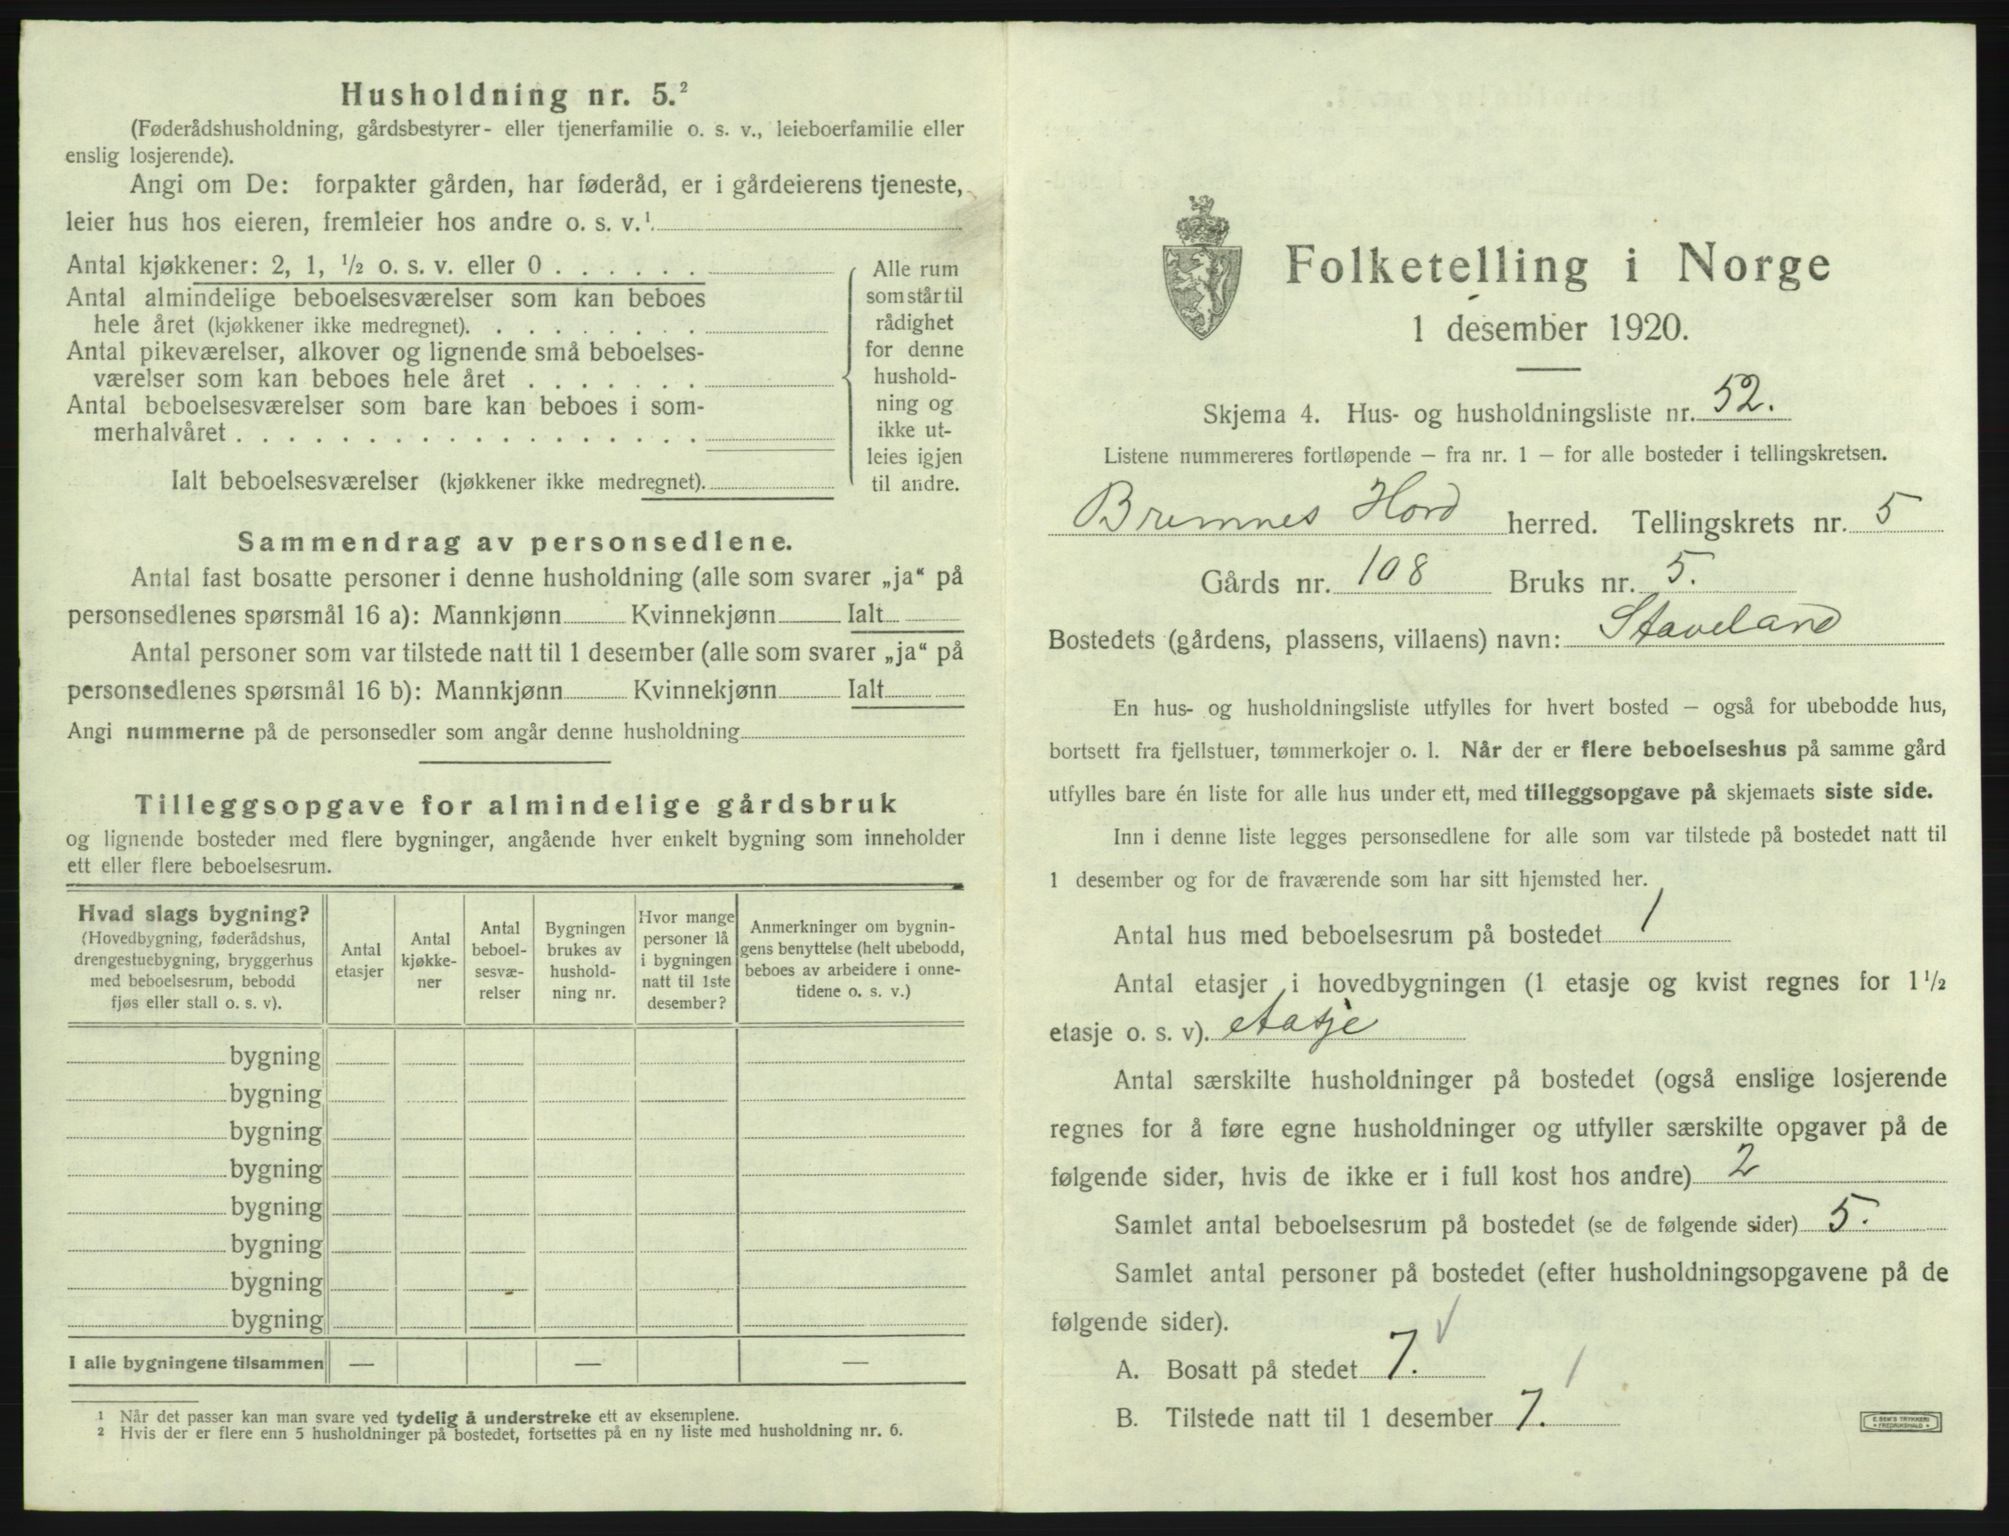 Husholdning nr. 5.²
(Føderådshusholdning, gårdsbestyrer- eller tjenerfamilie o. s. v., leieboerfamilie eller
enslig losjerende).
Angi om De: forpakter gården, har føderåd, er i gårdeierens tjeneste,
leier hus hos eieren, fremleier hos andre o. s. v.¹.
Antal kjøkkener: 2, 1, ½ o. s. v. eller 0 . . . . . .
Antal almindelige beboelsesværelser som kan beboes
hele året (kjøkkener ikke medregnet). . . . . . . . .
Antal pikeværelser, alkover og lignende små beboelses-
værelser som kan beboes hele året . . . . . . .
Antal beboelsesværelser som bare kan beboes i som-
merhalvåret . . . . . . . . . . . . . . . . . .
Ialt beboelsesværelser (kjøkkener ikke medregnet).
Alle rum
som står til
rådighet
for denne
hushold-
ning og
ikke ut-
leies igjen
til andre.
Sammendrag av personsedlene.
Antal fast bosatte personer i denne husholdning (alle som svarer „ja“ på
personsedlenes spørsmål 16 a): Mannkjønn Kvinnekjønn Ialt
Antal personer som var tilstede natt til 1 desember (alle som svarer „ja“ på
personsedlenes spørsmål 16 b): Mannkjønn Kvinnekjønn Ialt
Angi nummerne på de personsedler som angår denne husholdning
Tilleggsopgave for almindelige gårdsbruk
og lignende bosteder med flere bygninger, angående hver enkelt bygning som inneholder
ett eller flere beboelsesrum.
Hvad slags bygning?
(Hovedbygning, føderådshus,
drengestuebygning, bryggerhus
med beboelsesrum, bebodd
fjøs eller stall o. s. v).
Antal
etasjer
Antal
kjøkke-
ner
Antal
beboel-
sesvæ-
relser
Bygningen
brukes av
hushold-
ning nr.
Hvor mange
personer lå
i bygningen
natt til 1ste
desember?
Anmerkninger om bygnin-
gens benyttelse (helt ubebodd,
beboes av arbeidere i onne-
tidene o. s. v.)
bygning
bygning
bygning
bygning
bygning
bygning
bygning
bygning
I alle bygningene tilsammen — — —
¹ Når det passer kan man svare ved tydelig å understreke ett av eksemplene.
² Hvis der er flere enn 5 husholdninger på bostedet, fortsettes på en ny liste med husholdning nr. 6.
Folketelling i Norge
1 desember 1920.
Skjema 4. Hus- og husholdningsliste nr. 52.
Listene nummereres fortløpende – fra nr. 1 – for alle bosteder i tellingskretsen.
Bremnes Hord herred. Tellingskrets nr. 5
Gårds nr. 108 Bruks nr. 5.
Bostedets (gårdens, plassens, villaens) navn: Staveland
En hus- og husholdningsliste utfylles for hvert bosted – også for ubebodde hus,
bortsett fra fjellstuer, tømmerkojer o. l. Når der er flere beboelseshus på samme gård
utfylles bare én liste for alle hus under ett, med tilleggsopgave på skjemaets siste side.
Inn i denne liste legges personsedlene for alle som var tilstede på bostedet natt til
1 desember og for de fraværende som har sitt hjemsted her.
Antal hus med beboelsesrum på bostedet 1
Antal etasjer i hovedbygningen (1 etasje og kvist regnes for 1½
etasje o. s. v). etasje
Antal særskilte husholdninger på bostedet (også enslige losjerende
regnes for å føre egne husholdninger og utfyller særskilte opgaver på de
følgende sider, hvis de ikke er i full kost hos andre) 2
Samlet antal beboelsesrum på bostedet (se de følgende sider) 5.
Samlet antal personer på bostedet (efter husholdningsopgavene på de
følgende sider).
A. Bosatt på stedet 7.
B. Tilstede natt til 1 desember 7.
E. SEM'S TRYKKERI
FREDRIKSHALD